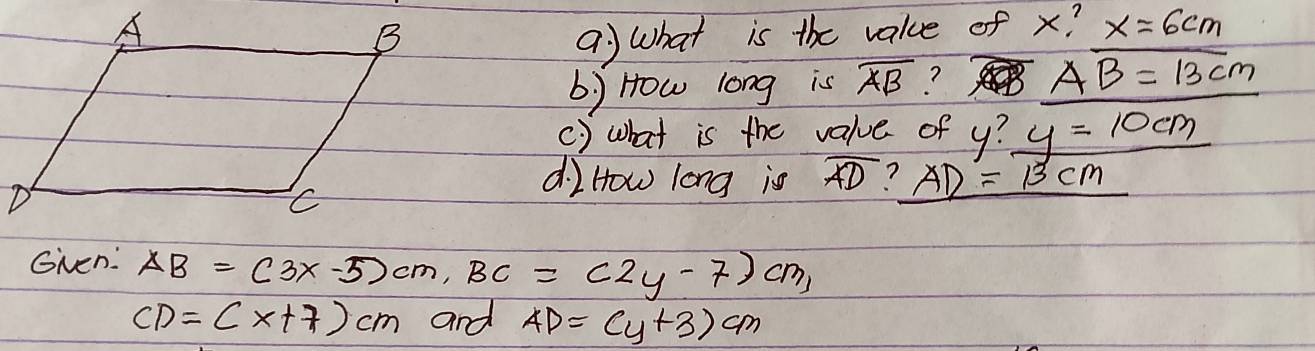 A B
D C
a.) What is the value of x? x = 6cm
b.) How long is AB? AB = 13cm
c.) what is the value of y? y = 10cm
d.) How long is AD? AD = 13 cm
Given: AB = (3x - 5) cm, BC = (2y - 7) cm,
CD = (x + 7) cm and AD = (y + 3) cm